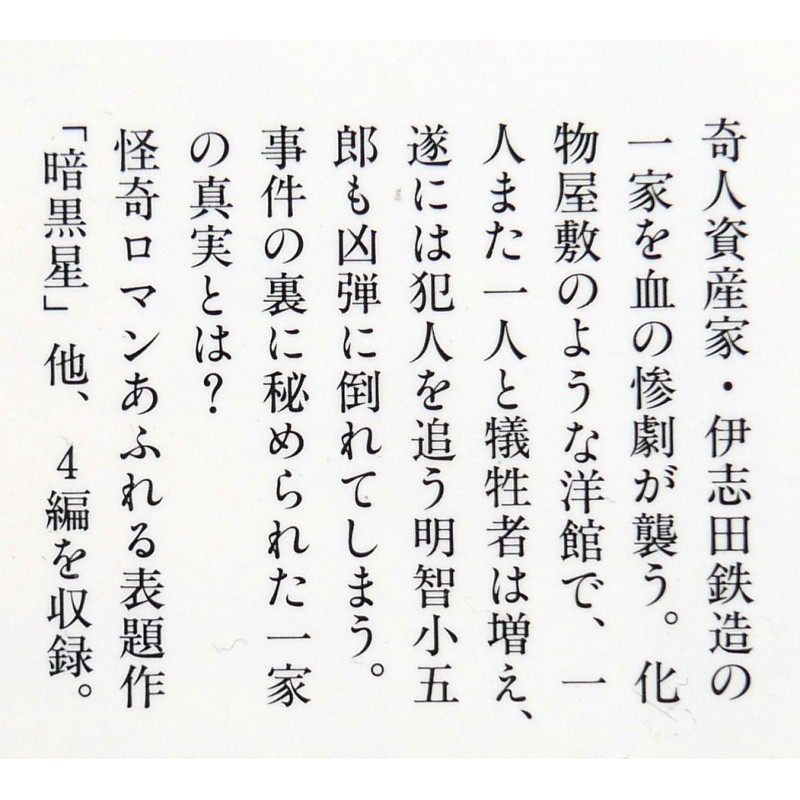 奇人資産家・伊志田鉄造の
一家を血の惨劇が襲う。化
物屋敷のような洋館で、一
人また一人と犠牲者は増え、
遂には犯人を追う明智小五
郎も凶弾に倒れてしまう。
事件の裏に秘められた一家
の真実とは?
怪奇ロマンあふれる表題作
「暗黒星」他、4編を収録。